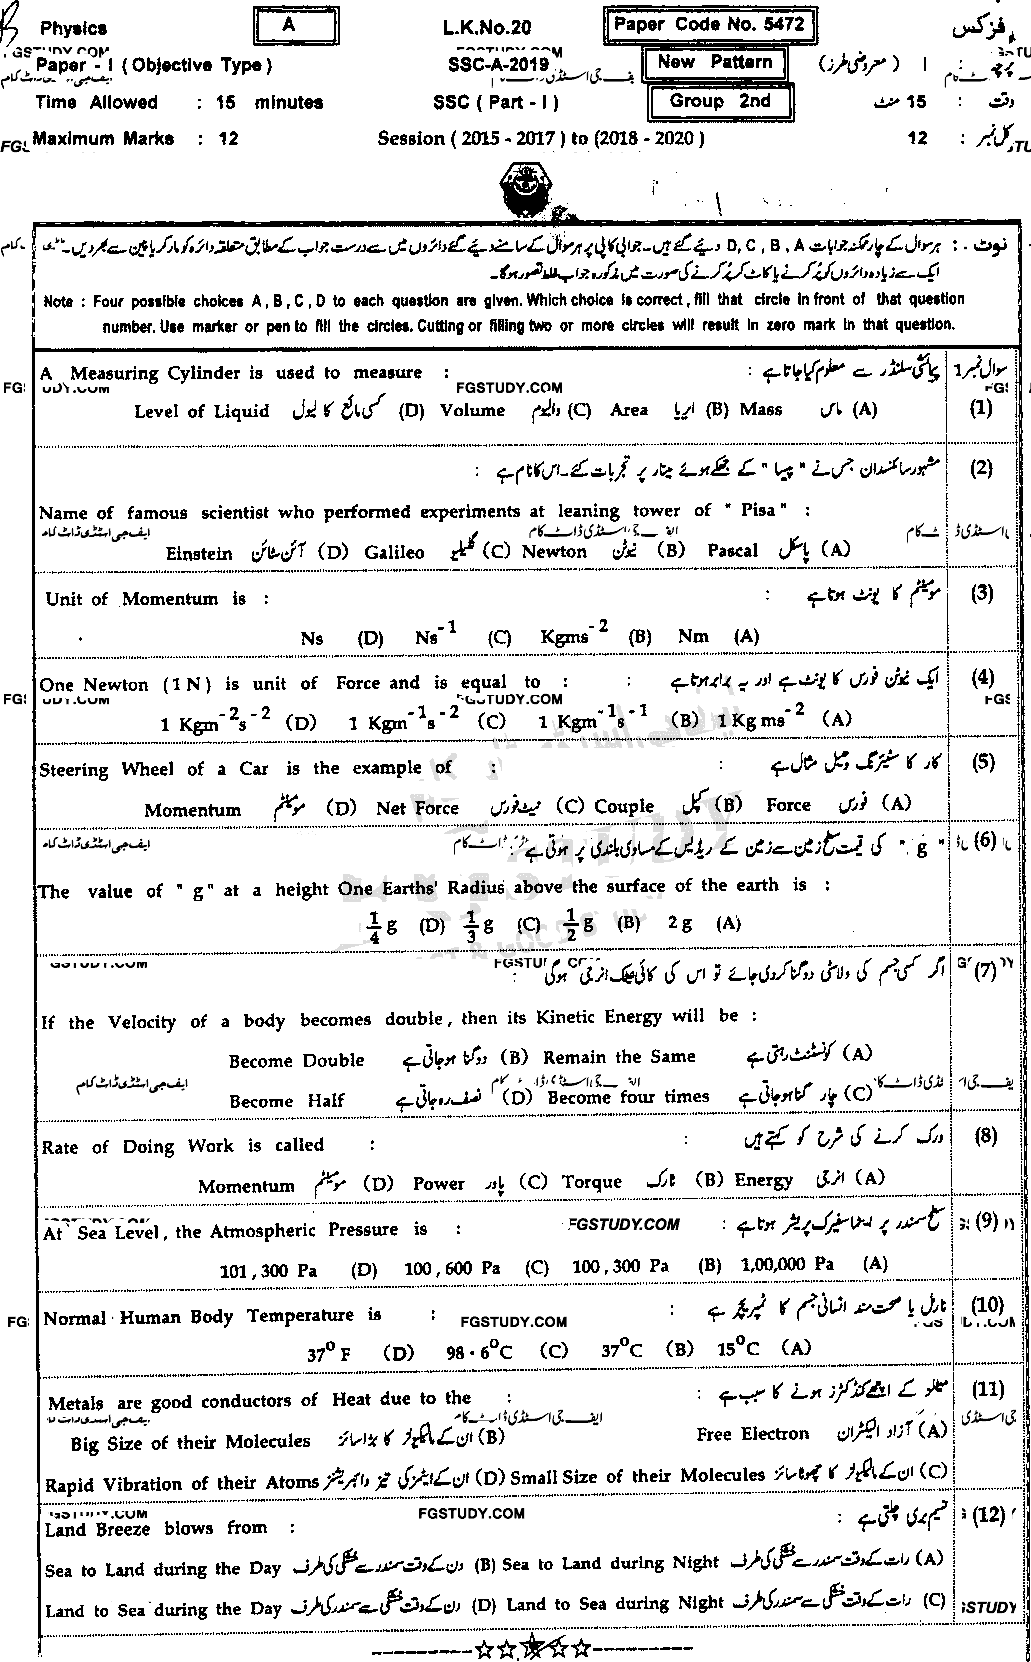 Physics A L.K.No.20 Paper Code No. 5472 فزکس
Paper - I ( Objective Type ) SSC-A-2019 New Pattern I ( معروضی طرز ) پرچہ
Time Allowed : 15 minutes SSC ( Part - I ) Group 2nd وقت : 15 منٹ
Maximum Marks : 12 Session ( 2015 - 2017 ) to (2018 - 2020 ) کل نمبر : 12
نوٹ : ہر سوال کے چار ممکنہ جوابات A , B , C , D دیئے گئے ہیں۔ جوابی کاپی پر ہر سوال کے سامنے دیئے گئے دائروں میں سے درست جواب کے مطابق متعلقہ دائرہ کو مارکر یا پین سے بھر دیں۔
ایک سے زیادہ دائروں کو پُر کرنے یا کاٹ کر پُر کرنے کی صورت میں مذکورہ جواب غلط تصور ہوگا۔
Note : Four possible choices A , B , C , D to each question are given. Which choice is correct , fill that circle in front of that question
number. Use marker or pen to fill the circles. Cutting or filling two or more circles will result in zero mark in that question.
A Measuring Cylinder is used to measure : پیمائشی سلنڈر سے معلوم کیا جاتا ہے : سوال نمبر 1
FGSTUDY.COM
Level of Liquid کسی مائع کا لیول (D) Volume والیوم (C) Area ایریا (B) Mass ماس (A) (1)
مشہور سائنسدان جس نے " پیسا " کے جھکے ہوئے مینار پر تجربات کئے۔ اس کا نام ہے : (2)
Name of famous scientist who performed experiments at leaning tower of " Pisa " :
ایف جی اسٹڈی ڈاٹ کام
Einstein آئن سٹائن (D) Galileo گلیلیو (C) Newton نیوٹن (B) Pascal پاسکل (A)
Unit of Momentum is : مومینٹم کا یونٹ ہوتا ہے : (3)
Ns (D) Ns⁻¹ (C) Kgms⁻² (B) Nm (A)
One Newton ( 1 N ) is unit of Force and is equal to : ایک نیوٹن فورس کا یونٹ ہے اور یہ برابر ہوتا ہے : (4)
1 Kgm⁻²s⁻² (D) 1 Kgm⁻¹s⁻² (C) 1 Kgm⁻¹s⁻¹ (B) 1 Kg ms⁻² (A)
Steering Wheel of a Car is the example of : کار کا سٹیئرنگ وہیل مثال ہے : (5)
Momentum مومینٹم (D) Net Force نیٹ فورس (C) Couple کپل (B) Force فورس (A)
" g " کی قیمت سطح زمین سے زمین کے ریڈیس کے مساوی بلندی پر ہوتی ہے : (6)
The value of " g " at a height One Earths' Radius above the surface of the earth is :
1/4 g (D) 1/3 g (C) 1/2 g (B) 2 g (A)
GSTUDY.COM
اگر کسی جسم کی ولاسٹی دوگنا کر دی جائے تو اس کی کائی نیٹک انرجی ہوگی : (7)
If the Velocity of a body becomes double , then its Kinetic Energy will be :
Become Double دوگنا ہو جاتی ہے (B) Remain the Same کونسٹنٹ رہتی ہے (A)
ایف جی اسٹڈی ڈاٹ کام
Become Half نصف رہ جاتی ہے (D) Become four times چار گنا ہو جاتی ہے (C)
Rate of Doing Work is called : ورک کرنے کی شرح کو کہتے ہیں : (8)
Momentum مومینٹم (D) Power پاور (C) Torque ٹارک (B) Energy انرجی (A)
At Sea Level , the Atmospheric Pressure is : FGSTUDY.COM سطح سمندر پر ایٹماسفیرک پریشر ہوتا ہے : (9)
101 , 300 Pa (D) 100 , 600 Pa (C) 100 , 300 Pa (B) 1,00,000 Pa (A)
Normal Human Body Temperature is : نارمل یا صحت مند انسانی جسم کا ٹمپریچر ہے : (10)
FGSTUDY.COM
37⁰ F (D) 98 · 6⁰C (C) 37⁰C (B) 15⁰C (A)
Metals are good conductors of Heat due to the : میٹلز کے اچھے کنڈکٹرز ہونے کا سبب ہے : (11)
ایف جی اسٹڈی ڈاٹ کام
Big Size of their Molecules ان کے مالیکیولز کا بڑا سائز (B) Free Electron آزاد الیکٹران (A)
Rapid Vibration of their Atoms ان کے ایٹمز کی تیز وائبریشنز (D) Small Size of their Molecules ان کے مالیکیولز کا چھوٹا سائز (C)
FGSTUDY.COM
Land Breeze blows from : نسیم بری چلتی ہے : (12)
Sea to Land during the Day دن کے وقت سمندر سے خشکی کی طرف (B) Sea to Land during Night رات کے وقت سمندر سے خشکی کی طرف (A)
Land to Sea during the Day دن کے وقت خشکی سے سمندر کی طرف (D) Land to Sea during Night رات کے وقت خشکی سے سمندر کی طرف (C)